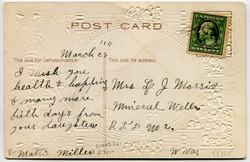 POST CARD
This side for Correspondence
March 29
I wish you
health & happing
& many more
birth days from
your daughter
Matie Miller
Mrs L J Morris
Mineral Wells
R F D No 2
W Va